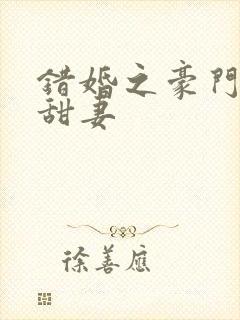 錯婚之豪門
甜妻
徐善應